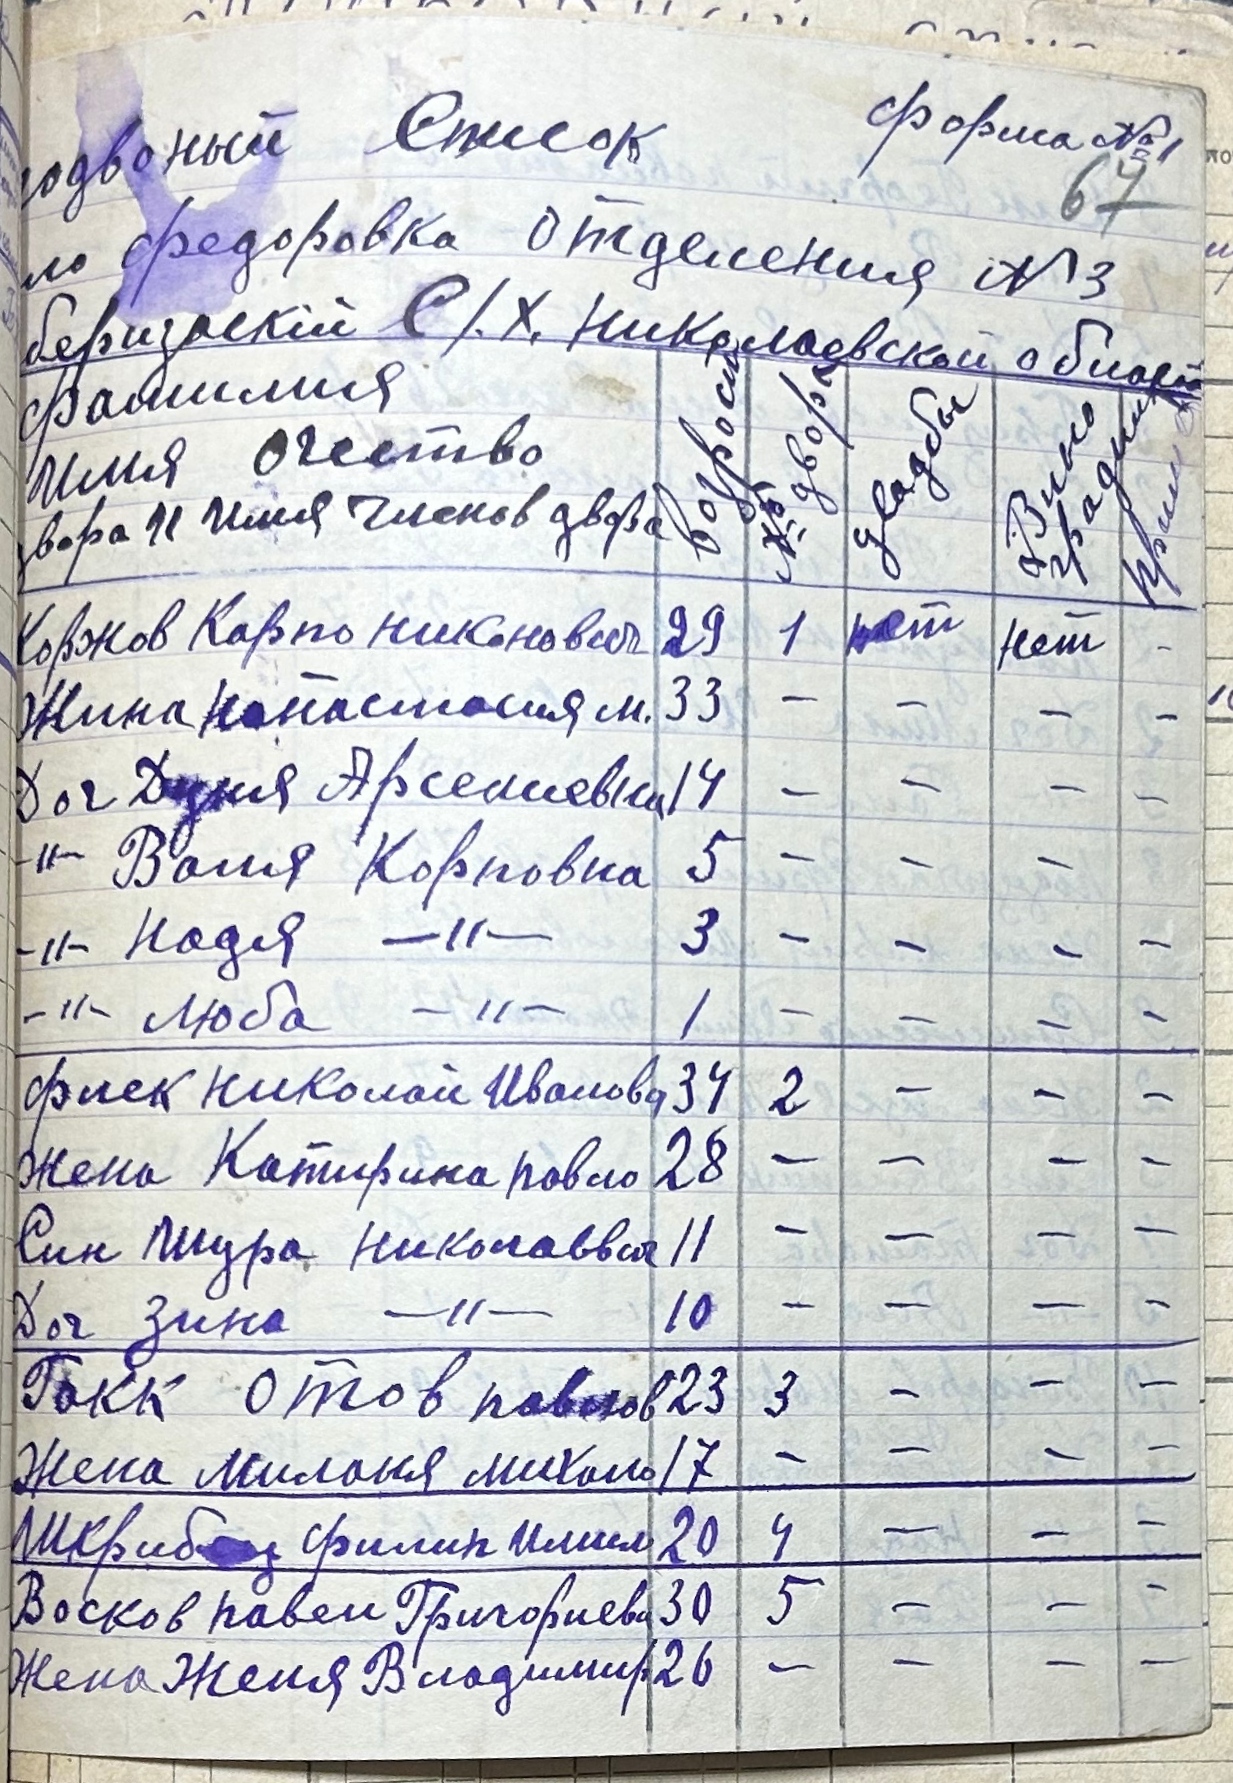 подворный Список форма №1
67
ло Федоровка Отделения №3
беризаскій С/.Х. Николаевской област
Фамилия
Имя Очество
двора и Имя Членов двора
возрост
№ двора
усадбы
Вино градник
Прим
Коржов Карпо Никоновеч 29 1 нет нет -
Жина Нанастасия м. 33 - - - -
Доч Дуня Арсениевна 14 - - - -
-"- Валя Корповна 5 - - -
-"- Надя -"- 3 - - - -
-"- Люба -"- 1 - - - -
Фиек Николай Иванов 34 2 - - -
Жена Катирина павло 28 - - - -
Син Шура Николаввич 11 - - - -
Доч Зина -"- 10 - - - -
Гакк Отов павлов 23 3 - - -
Жена Миланя михало 17 - - - -
Филип 20 4 - - -
Восков павел Григориев 30 5 - - -
Жена Женя Владимир 26 - - - -